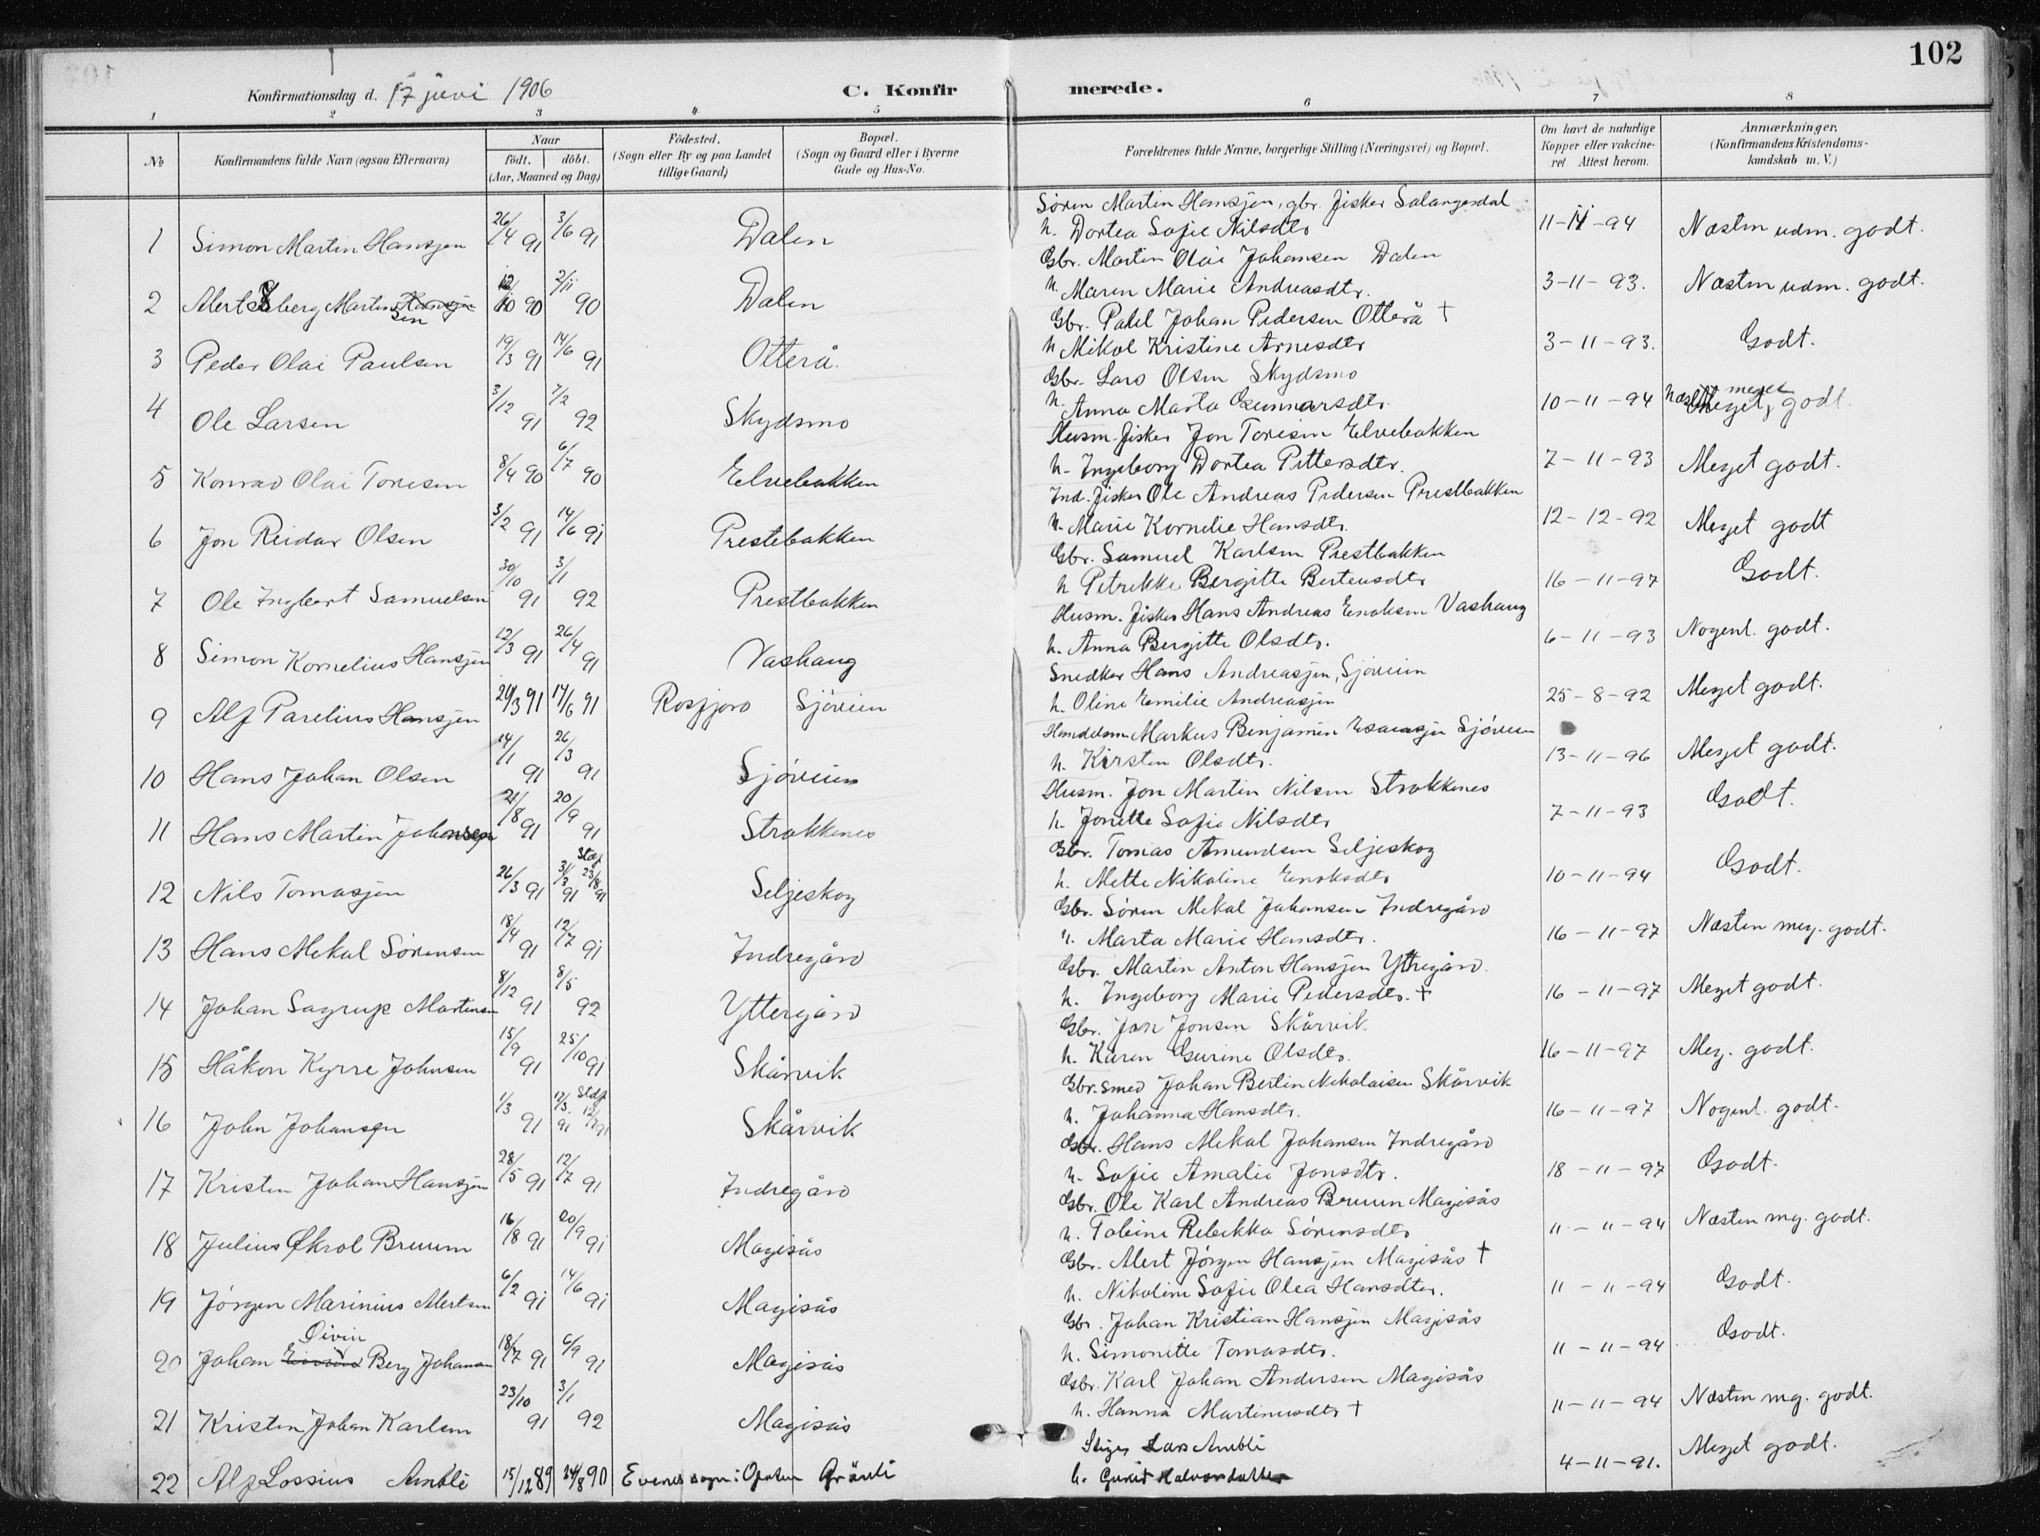 102
Konfirmationsdag d. 17 juni 1906 C. Konfirmerede.
1 2 3 4 5 6 7 8
No Konfirmandens fulde Navn (ogsaa Efternavn) Naar födt. döbt. (Aar, Maaned og Dag) Födested. (Sogn eller By og paa Landet tillige Gaard) Bopæl. (Sogn og Gaard eller i Byerne Gade og Hus-No. Forældrenes fulde Navne, borgerlige Stilling (Næringsvei) og Bopæl. Om havt de naturlige Kopper eller vakcineret Attest herom. Anmærkninger. (Konfirmandens Kristendomskundskab m. V.)
1 Simon Martin Hansjen 26/4 91 3/6 91 Dalen Sören Martin Hansjen, gbr. fisker Salangsdal h. Dortea Sofie Nilsdtr 11-11-94 Næsten udm. godt.
2 Alert Seberg Martinsen 90 2/11 90 Dalen Gbr. Martin Olai Johansen Dalen h. Maren Marie Andreasdtr. 3-11-93. Næsten udm. godt.
3 Peder Olai Paulsen 19/3 91 14/6 91 Otterå. Gbr. Palel Johan Pedersen Otterå † h. Mikol Kristine Arnesdtr 3-11-93. Godt.
4 Ole Larsen 3/12 91 7/2 92 Skydsmo Gbr. Lars Olsen Skydsmo h. Anna Marta Gunnarsdtr. 10-11-94 næsten meget godt.
5 Konrad Olai Toresen 8/4 90 6/7 90 Elvebakken Husm. fisker Jon Toresen Elvebakken h. Ingeborg Dortea Pittersdtr. 7-11-93 Meget godt.
6 Jon Reidar Olsen 3/2 91 14/6 91 Prestebakken Ind. fisker Ole Andreas Pedersen Prestbakken h. Marie Kornelie Hansdtr. 12-12-92 Meget godt
7 Ole Ingbert Samuelsen 30/10 91 3/1 92 Prestbakken Gbr. Samuel Karlsen Prestbakken h. Petrikke Bergitte Berteusdtr 16-11-97 Godt.
8 Simon Kornelius Hansjen 12/3 91 26/4 91 Vashaug Husm. fisker Hans Andreas Enoksen Vashaug h. Anna Bergitte Olsdtr. 6-11-93 Nogenl. godt.
9 Alf Parelius Hansjen 29/3 91 14/6 91 Rosfjord Sjöveien Snedker Hans Andreasjen, Sjöveien h. Oline Emilie Andreasjen 25-8-92 Meget godt.
10 Hans Johan Olsen 14/1 91 26/3 91 Sjöveien Handelsm. Markus Benjamin Esaiasjen Sjöveien h. Kirsten Olsdtr. 13-11-96 Meget godt.
11 Hans Martin Johnsen 21/8 91 20/9 91 Strokkenes Husm. Jon Martin Nilsen Strokkenes h. Jonette Sofie Nilsdtr 7-11-93 Godt.
12 Nils Tomasjen 26/3 91 31/3 91 Stdf 23/8 91 Seljeskog Gbr. Tomas Amundsen Seljeskog h. Mette Nikoline Enoksdtr 10-11-94 Godt.
13 Hans Mekal Sörensen 18/4 91 12/7 91 Indregård Gbr. Sören Mekal Johansen Indregård h. Marta Marie Hansdtr. 16-11-97 Næsten meg. godt.
14 Johan Sagrup Martinsen 8/12 91 8/5 92 Yttergård Gbr. Martin Anton Hansjen Yttregård. h. Ingeborg Marie Pedersdtr. † 16-11-97 Meget godt.
15 Håkon Kyrre Johnsen 15/9 91 25/10 91 Skårvik Gbr. Jon Jonsen Skårvik h. Karen Gurine Olsdtr. 16-11-97 Meg. godt.
16 John Johansen 1/3 91 12/3 91 Stdf Skårvik Gbr. smed Johan Bertin Nikolaisen Skårvik h. Johanna Hansdtr. 16-11-97 Nogenl. godt.
17 Kristen Johan Hansjen 28/5 91 12/7 91 Indregård Gbr. Hans Mekal Johansen Indregård h. Sofie Amalie Jonsdtr. 18-11-97 Godt.
18 Julius Ökrol Bruum 16/8 91 20/9 91 Magisås Gbr. Ole Karl Andreas Bruun Magisås h. Tobine Rebekka Sörensdtr 11-11-94 Næsten mg. godt.
19 Jörgen Marinius Alertsen 6/2 91 14/6 91 Magisås Gbr. Alert Jörgen Hansjen Magisås † h. Nikoline Sofie Olea Hansdtr. 11-11-94 Godt.
20 Johan Oivin Berg Johansen 18/7 91 6/9 91 Magisås Gbr. Johan Kristian Hansjen Magisås h. Simonette Tomasdtr. 11-11-94 Godt.
21 Kristen Johan Karlsen 23/10 91 3/1 92 Magisås Gbr. Karl Johan Andersen Magisås h. Hanna Martinusdtr † 11-11-94 Næsten mg. godt.
22 Alf Lossius Ambli 15/12 89 24/8 90 Evenes sogn: Grånli Stiger Lars Ambli h. Gunild Halvorsdatter 4-11-91. Meget godt.